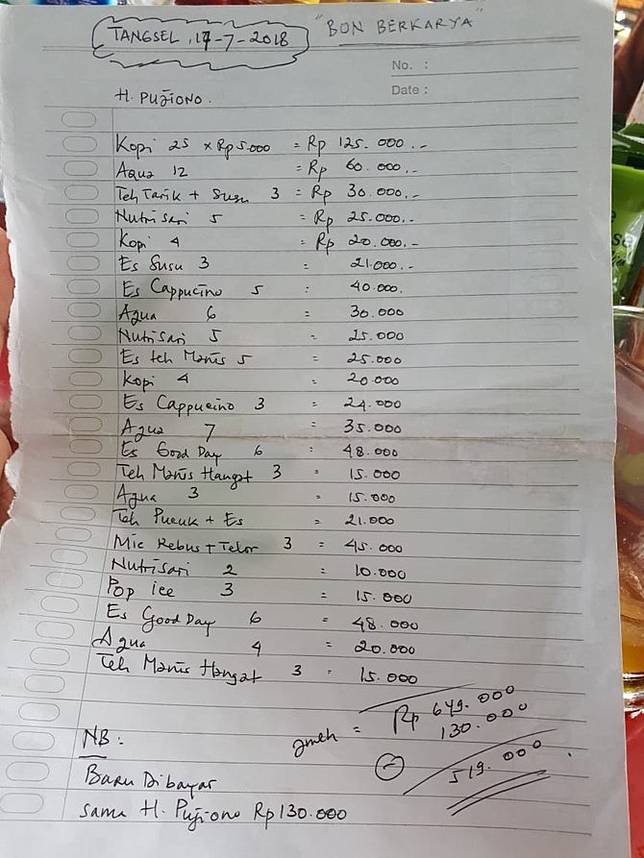 TANGSEL, 17-7-2018
"BON BERKARYA"
No. :
Date :
H. PUJIONO.
Kopi 25 x Rp 5.000 = Rp 125.000,-
Aqua 12 = Rp 60.000,-
Teh Tarik + Susu 3 = Rp 30.000,-
Nutrisari 5 = Rp 25.000,-
Kopi 4 = Rp 20.000,-
Es Susu 3 : 21.000,-
Es Cappucino 5 : 40.000,
Aqua 6 = 30.000
Nutrisari 5 = 25.000
Es teh Manis 5 = 25.000
Kopi 4 = 20.000
Es Cappucino 3 = 24.000
Aqua 7 = 35.000
Es Good Day 6 : 48.000
Teh Manis Hangat 3 = 15.000
Aqua 3 = 15.000
Teh Pucuk + Es = 21.000
Mie Rebus + Telor 3 = 45.000
Nutrisari 2 = 10.000
Pop ice 3 = 15.000
Es Good Day 6 = 48.000
Aqua 4 = 20.000
Teh Manis Hangat 3 = 15.000
jmlh = Rp 649.000
130.000
NB :
519.000
Baru Dibayar
sama H. Pujiono Rp 130.000